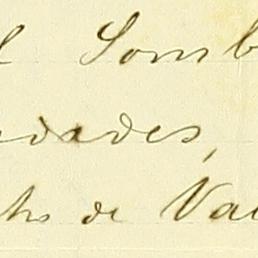 l Somb
dades,
de Val